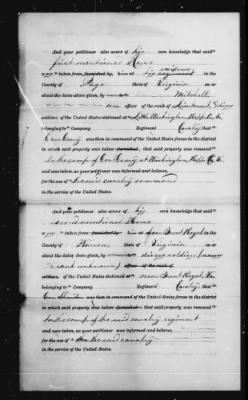 And your petitioner also avers of his own knowledge that said
first mentioned Horse
was taken from, furnished by, him at his residence
County of Page State of Virginia on or
about the dates above given, by Mitchell
an officer of the rank of Lieutenant & divers
soldiers of the United States stationed at Little Washington Rapp. Co. Va.
belonging to Company Regiment Cavalry that
Gen Geary was then in command of the United States forces in the district
in which said property was taken furnished, that said property was taken
to the camp of Gen Geary at Washington Rapp. Co. Va.
and was taken, as your petitioner was informed and believes,
for the use of the said cavalry command
in the service of the United States.
And your petitioner also avers of his own knowledge that said
mentioned Horse
was taken from, furnished by, him at near Front Royal, in the
County of Warren State of Virginia on or
about the dates above given, by divers soldiers (names
& rank unknown) officer of the rank of
soldiers of the United States stationed at near Front Royal, Va.
belonging to Company Regiment Cavalry that
Gen was then in command of the United States forces in the district
in which said property was taken furnished, that said property was taken
to the camp of the said cavalry regiment
and was taken, as your petitioner was informed and believes,
for the use of the said cavalry
in the service of the United States.